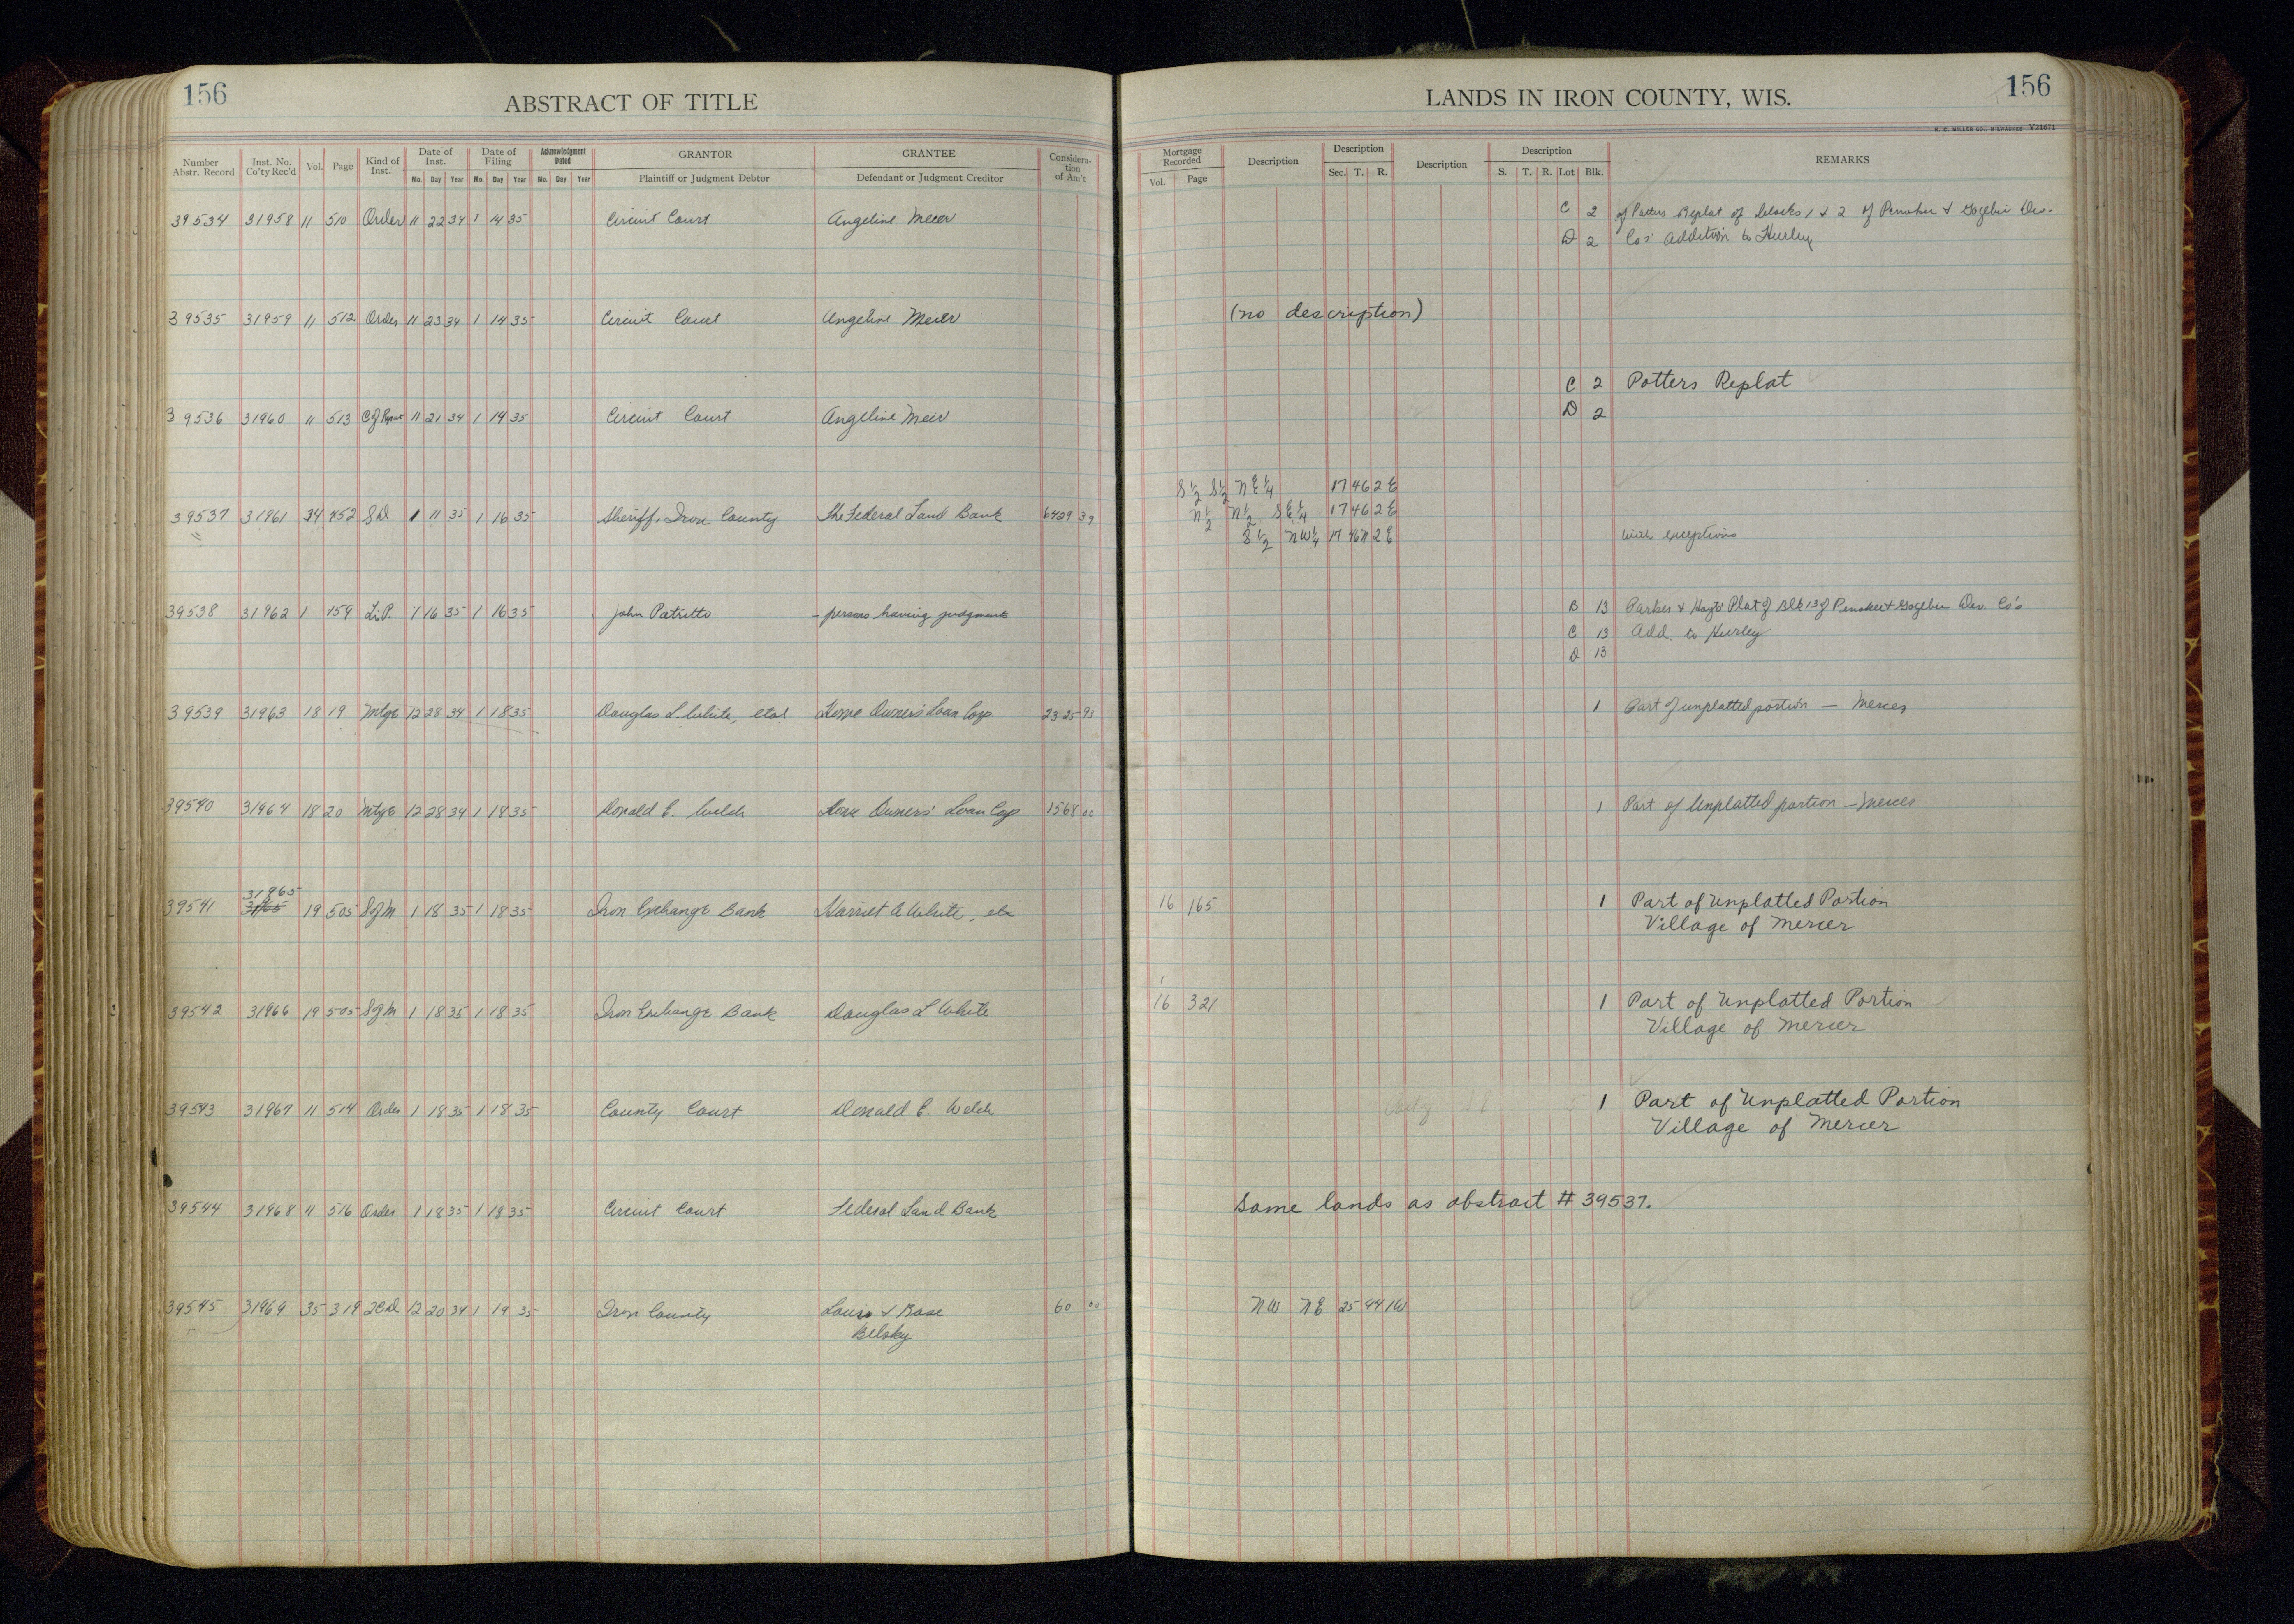 156
ABSTRACT OF TITLE
Number Abstr. Record | Inst. No. Co'ty Rec'd | Vol. | Page | Kind of Inst. | Date of Inst. Mo. Day Year | Date of Filing Mo. Day Year | Acknowledgment Dated Mo. Day Year | GRANTOR Plaintiff or Judgment Debtor | GRANTEE Defendant or Judgment Creditor | Consideration of Am't
39534 31958 11 510 Order 11 22 34 1 14 35 Circuit Court Angeline Meier
39535 31959 11 512 Order 11 23 34 1 14 35 Circuit Court Angeline Meier
39536 31960 11 513 C of 11 21 34 1 14 35 Circuit Court Angeline Meir
39537 31961 34 452 S D 1 11 35 1 16 35 Sheriff, Iron County The Federal Land Bank 6429 39
39538 31962 1 459 Li.P. 1 16 35 1 16 35 John Patritto - persons having judgments
39539 31963 18 19 Mtge 12 28 34 1 18 35 Douglas L. White, etal Home Owner's Loan Corp. 2325 93
39540 31964 18 20 Mtge 12 28 34 1 18 35 Donald E. Welch Home Owners' Loan Corp 1568 00
31965
39541 19 505 S of M 1 18 35 1 18 35 Iron Exchange Bank Harriet A White, etc
39542 31966 19 505 S of M 1 18 35 1 18 35 Iron Exchange Bank Douglas L White
39543 31967 11 514 Order 1 18 35 1 18 35 County Court Donald E. Welch
39544 31968 11 516 Order 1 18 35 1 18 35 Circuit Court Federal Land Bank
39545 31969 35 319 2CD 12 20 34 1 19 35 Iron County Louis & Rose 60 00
Belsky
LANDS IN IRON COUNTY, WIS.
156
H. C. MILLER CO., MILWAUKEE V21671
Mortgage Recorded Vol. Page | Description | Description Sec. T. R. | Description | Description S. T. R. Lot Blk. | REMARKS
C 2 of Potters Replat of blocks 1 & 2 of Penokee & Gogebic Dev.
D 2 Co's Addition to Hurley
(no description)
C 2 Potters Replat
D 2
S½ S½ NE¼ 17 46 2 E
N½ N½ SE¼ 17 46 2 E
S½ NW¼ 17 46N 2 E with exceptions
B 13 Parker & Hoyt's Plat of Blk 13 of Penokee & Gogebic Dev. Co's
C 13 Add. to Hurley
D 13
1 Part of unplatted portion — Mercer
1 Part of Unplatted portion — Mercer
16 165 1 Part of Unplatted Portion
Village of Mercer
16 321 1 Part of Unplatted Portion
Village of Mercer
1 Part of Unplatted Portion
Village of Mercer
Same lands as abstract # 39537.
NW NE 25 44 1W